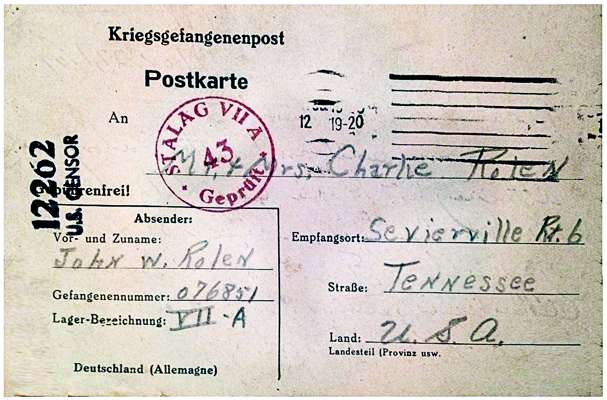 Kriegsgefangenenpost
Postkarte
An
12 19-20
STALAG VII A
43
Geprüft
Mr. + Mrs. Charlie Rolen
12262
U.S. CENSOR
Absender:
Vor- und Zuname:
John W. Rolen
Gefangenennummer: 076851
Lager-Bezeichnung: VII-A
Deutschland (Allemagne)
Empfangsort: Sevierville Rt. 6
Straße: Tennessee
Land: U. S. A.
Landesteil (Provinz usw.